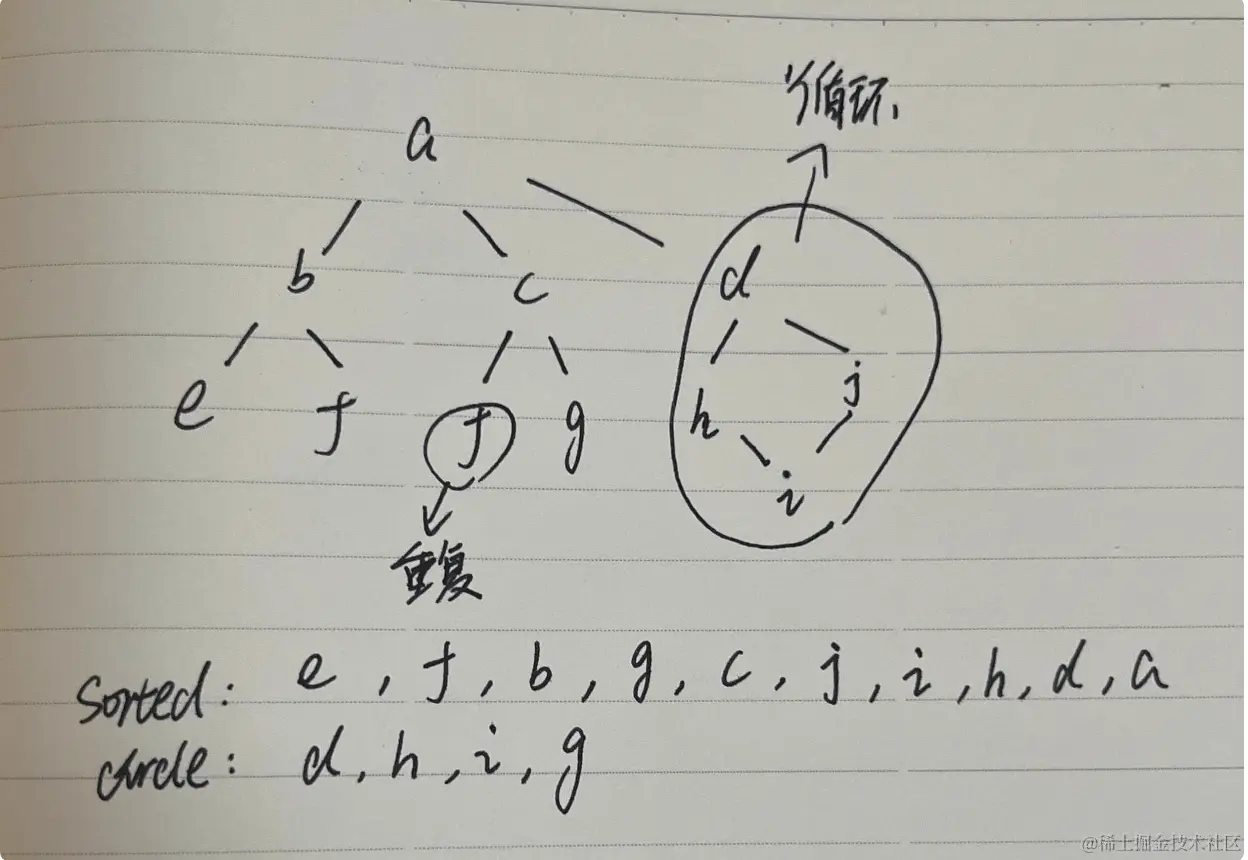 循环
a
b c d
e f f g h j
i
重复
Sorted: e, f, b, g, c, j, i, h, d, a
circle: d, h, i, g
@稀土掘金技术社区